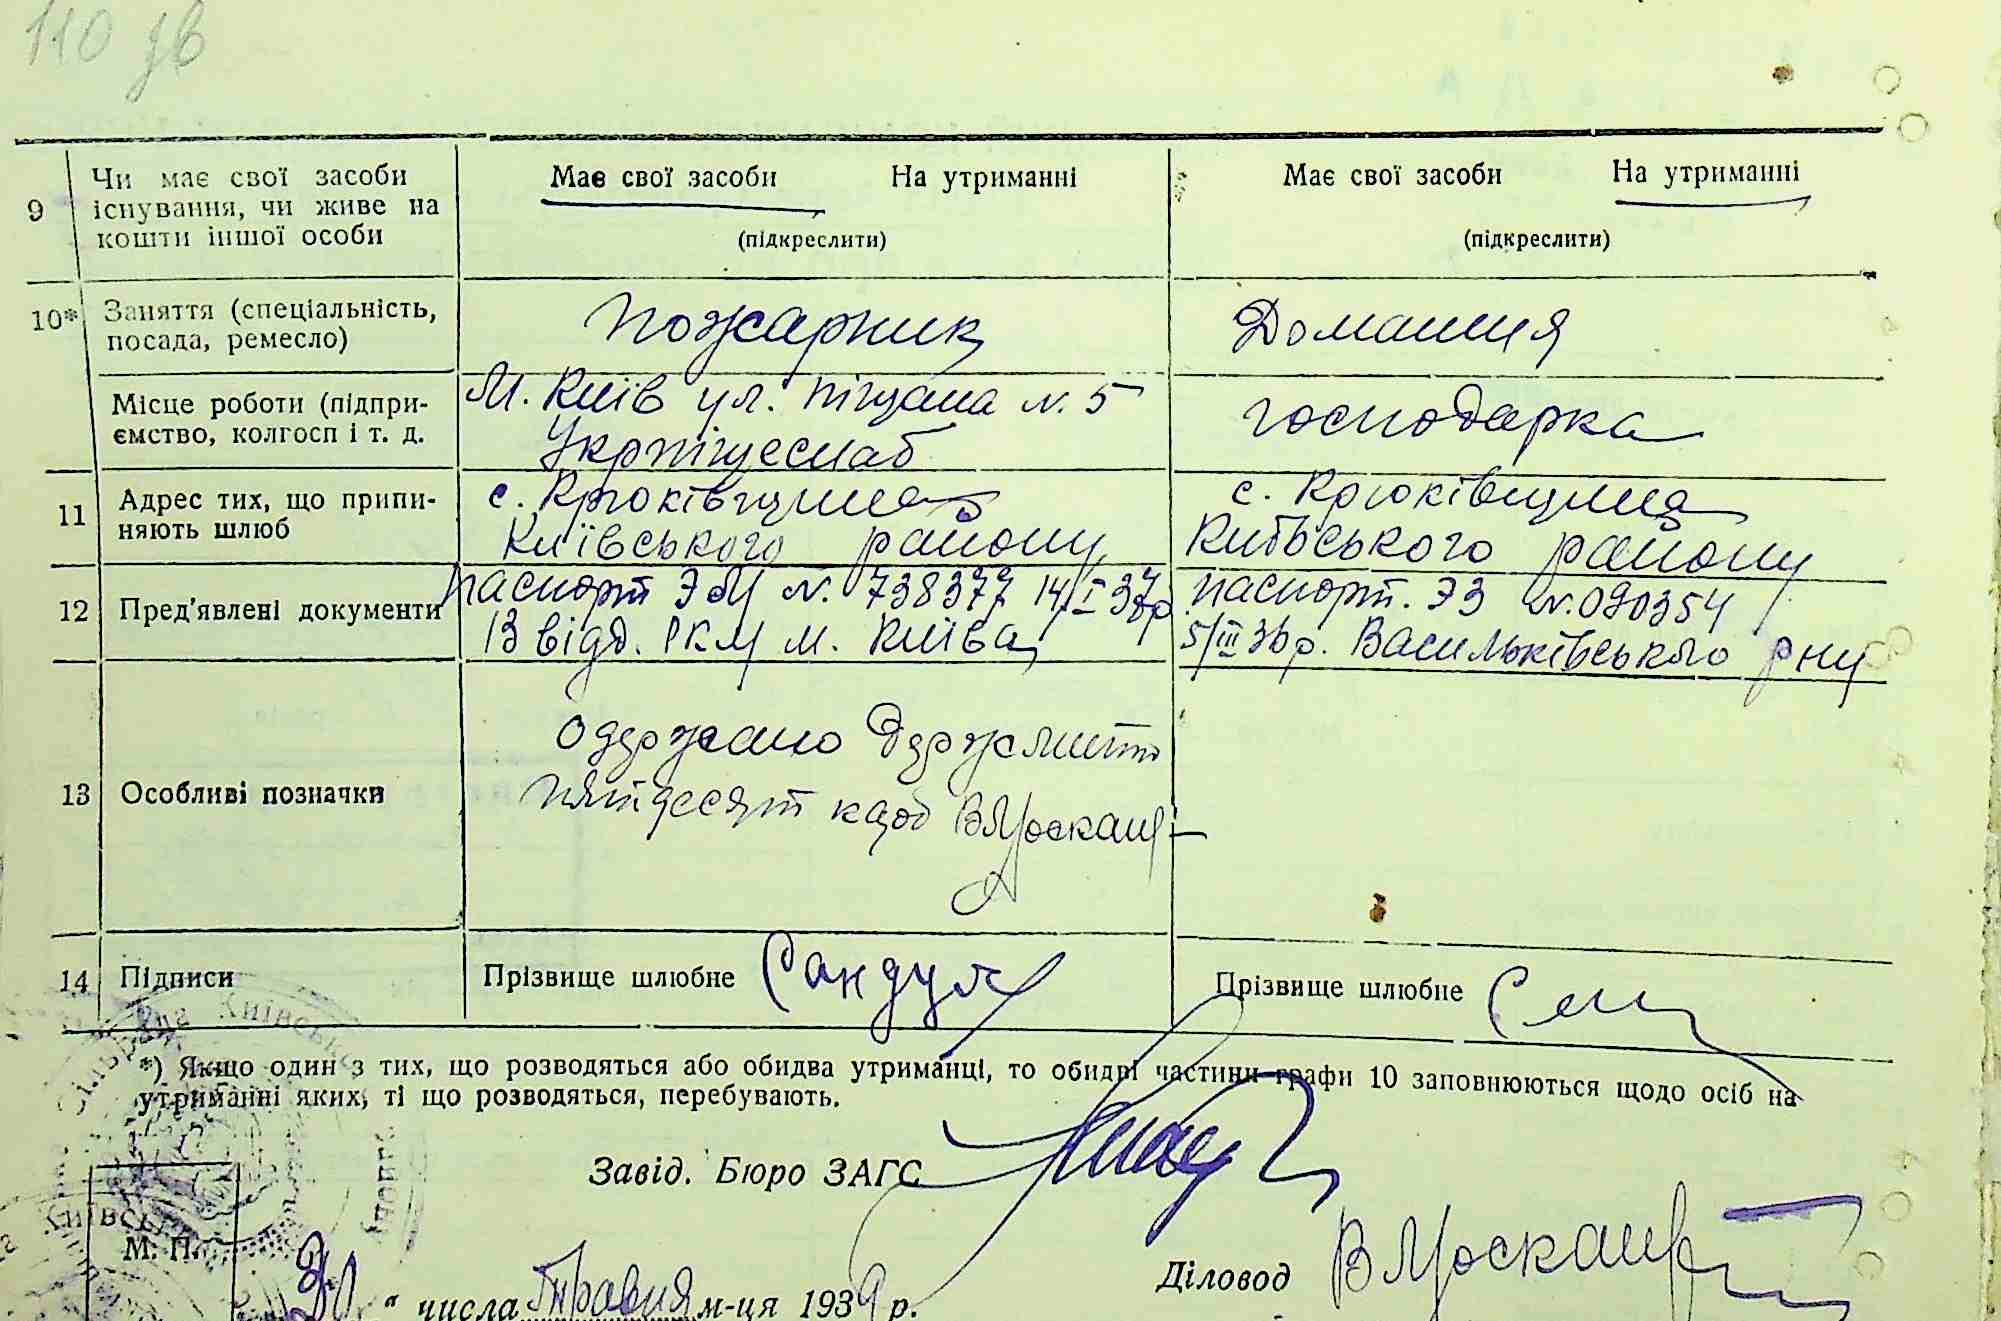 110 зв
9 Чи має свої засоби існування, чи живе на кошти іншої особи
Має свої засоби На утриманні
(підкреслити)
Має свої засоби На утриманні
(підкреслити)
10* Заняття (спеціальність, посада, ремесло)
Пожарник
Домашня
Місце роботи (підпри-
ємство, колгосп і т. д.
М. Київ ул. Піщана N. 5
Укрпіщеснаб
господарка
11 Адрес тих, що припи-
няють шлюб
с. Крюківщина
Київського району
с. Крюківщина
Київського району
12 Пред'явлені документи
паспорт N. 738377 14/I 37р
13 відд. РКМ м. Київа
паспорт. ЭЗ N. 090354
5/III 36р. Васильківського рну
13 Особливі позначки
Одержано Держмито
пятдесят
14 Підписи
Прізвище шлюбне Сандул
Прізвище шлюбне
*) Якщо один з тих, що розводяться або обидва утриманці, то обидві частини графи 10 заповнюються щодо осіб на
утриманні яких, ті що розводяться, перебувають.
Завід. Бюро ЗАГС
М. П.
Діловод
30 " числа Травня м-ця 1939 р.